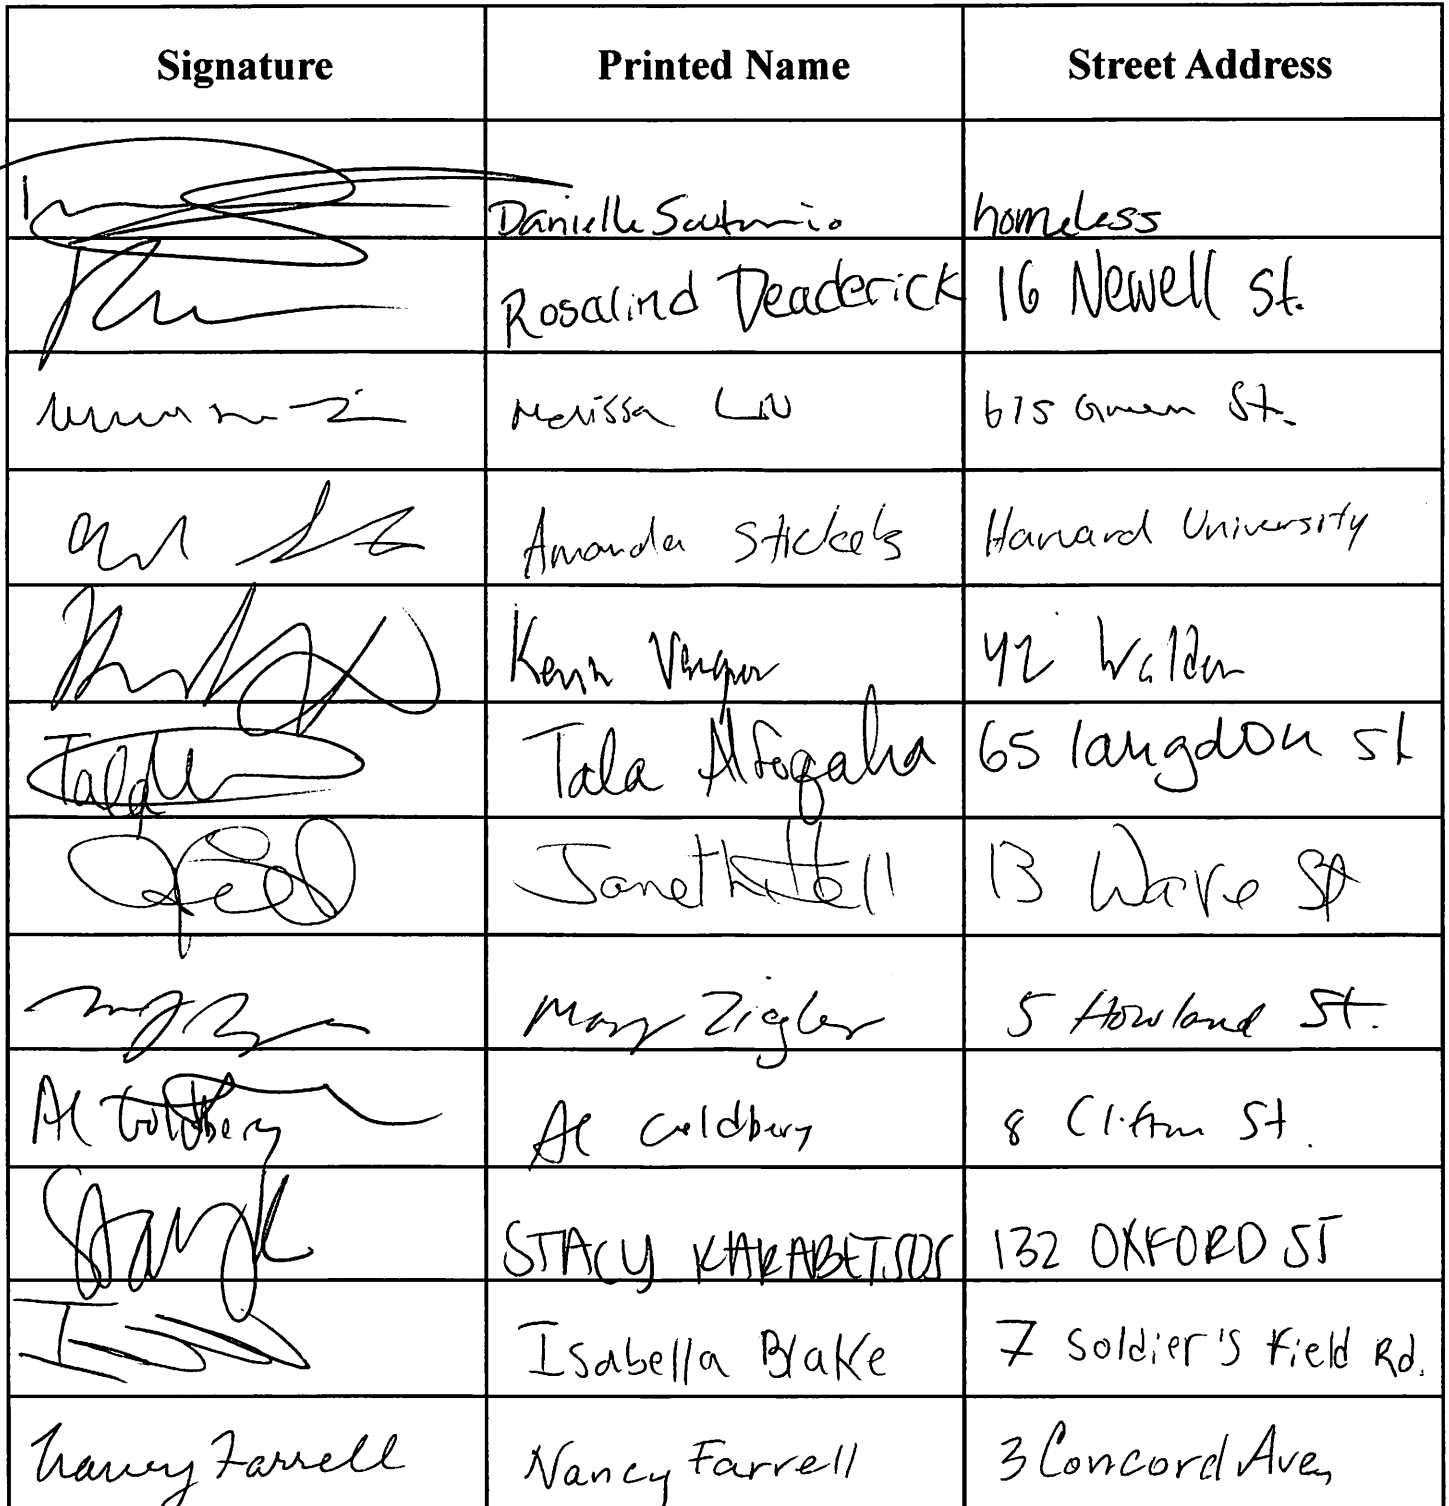 Signature Printed Name Street Address
Danielle homeless
Rosalind Deaderick 16 Newell St.
Liu 675 Green St.
Amanda Stickels Harvard University
Kevin 42 Walden
Tala Alfoqaha 65 langdon st
Janet 13 Ware St
Mary Zigler 5 Howland St.
Al Goldberg Al Goldberg 8 Clifton St.
STACY KARABETSOS 132 OXFORD ST
Isabella Blake 7 Soldier's Field Rd.
Nancy Farrell Nancy Farrell 3 Concord Ave,